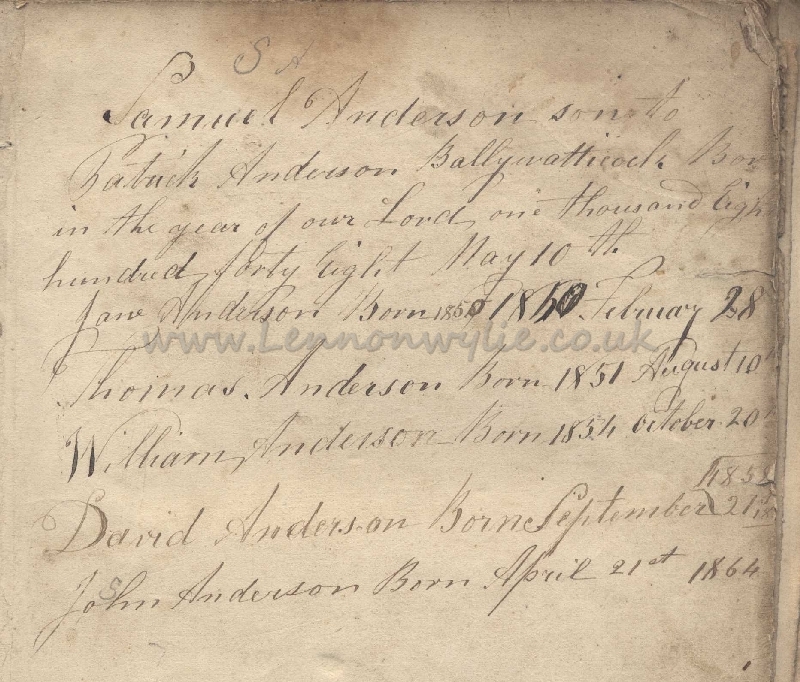 S A
Samuel Anderson son to
Patrick Anderson Ballywatticock Bor
in the year of our Lord one thousand Eigh
hundred forty Eight May 10 th
Jane Anderson Born 1850 1850 February 28
www.Lennonwylie.co.uk
Thomas Anderson Born 1851 August 10th
William Anderson Born 1854 October 20th
185
David Anderson Born September 21st
John Anderson Born April 21st 1864